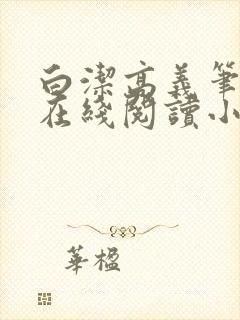 白潔高義筆
在綫閱讀小
華楹